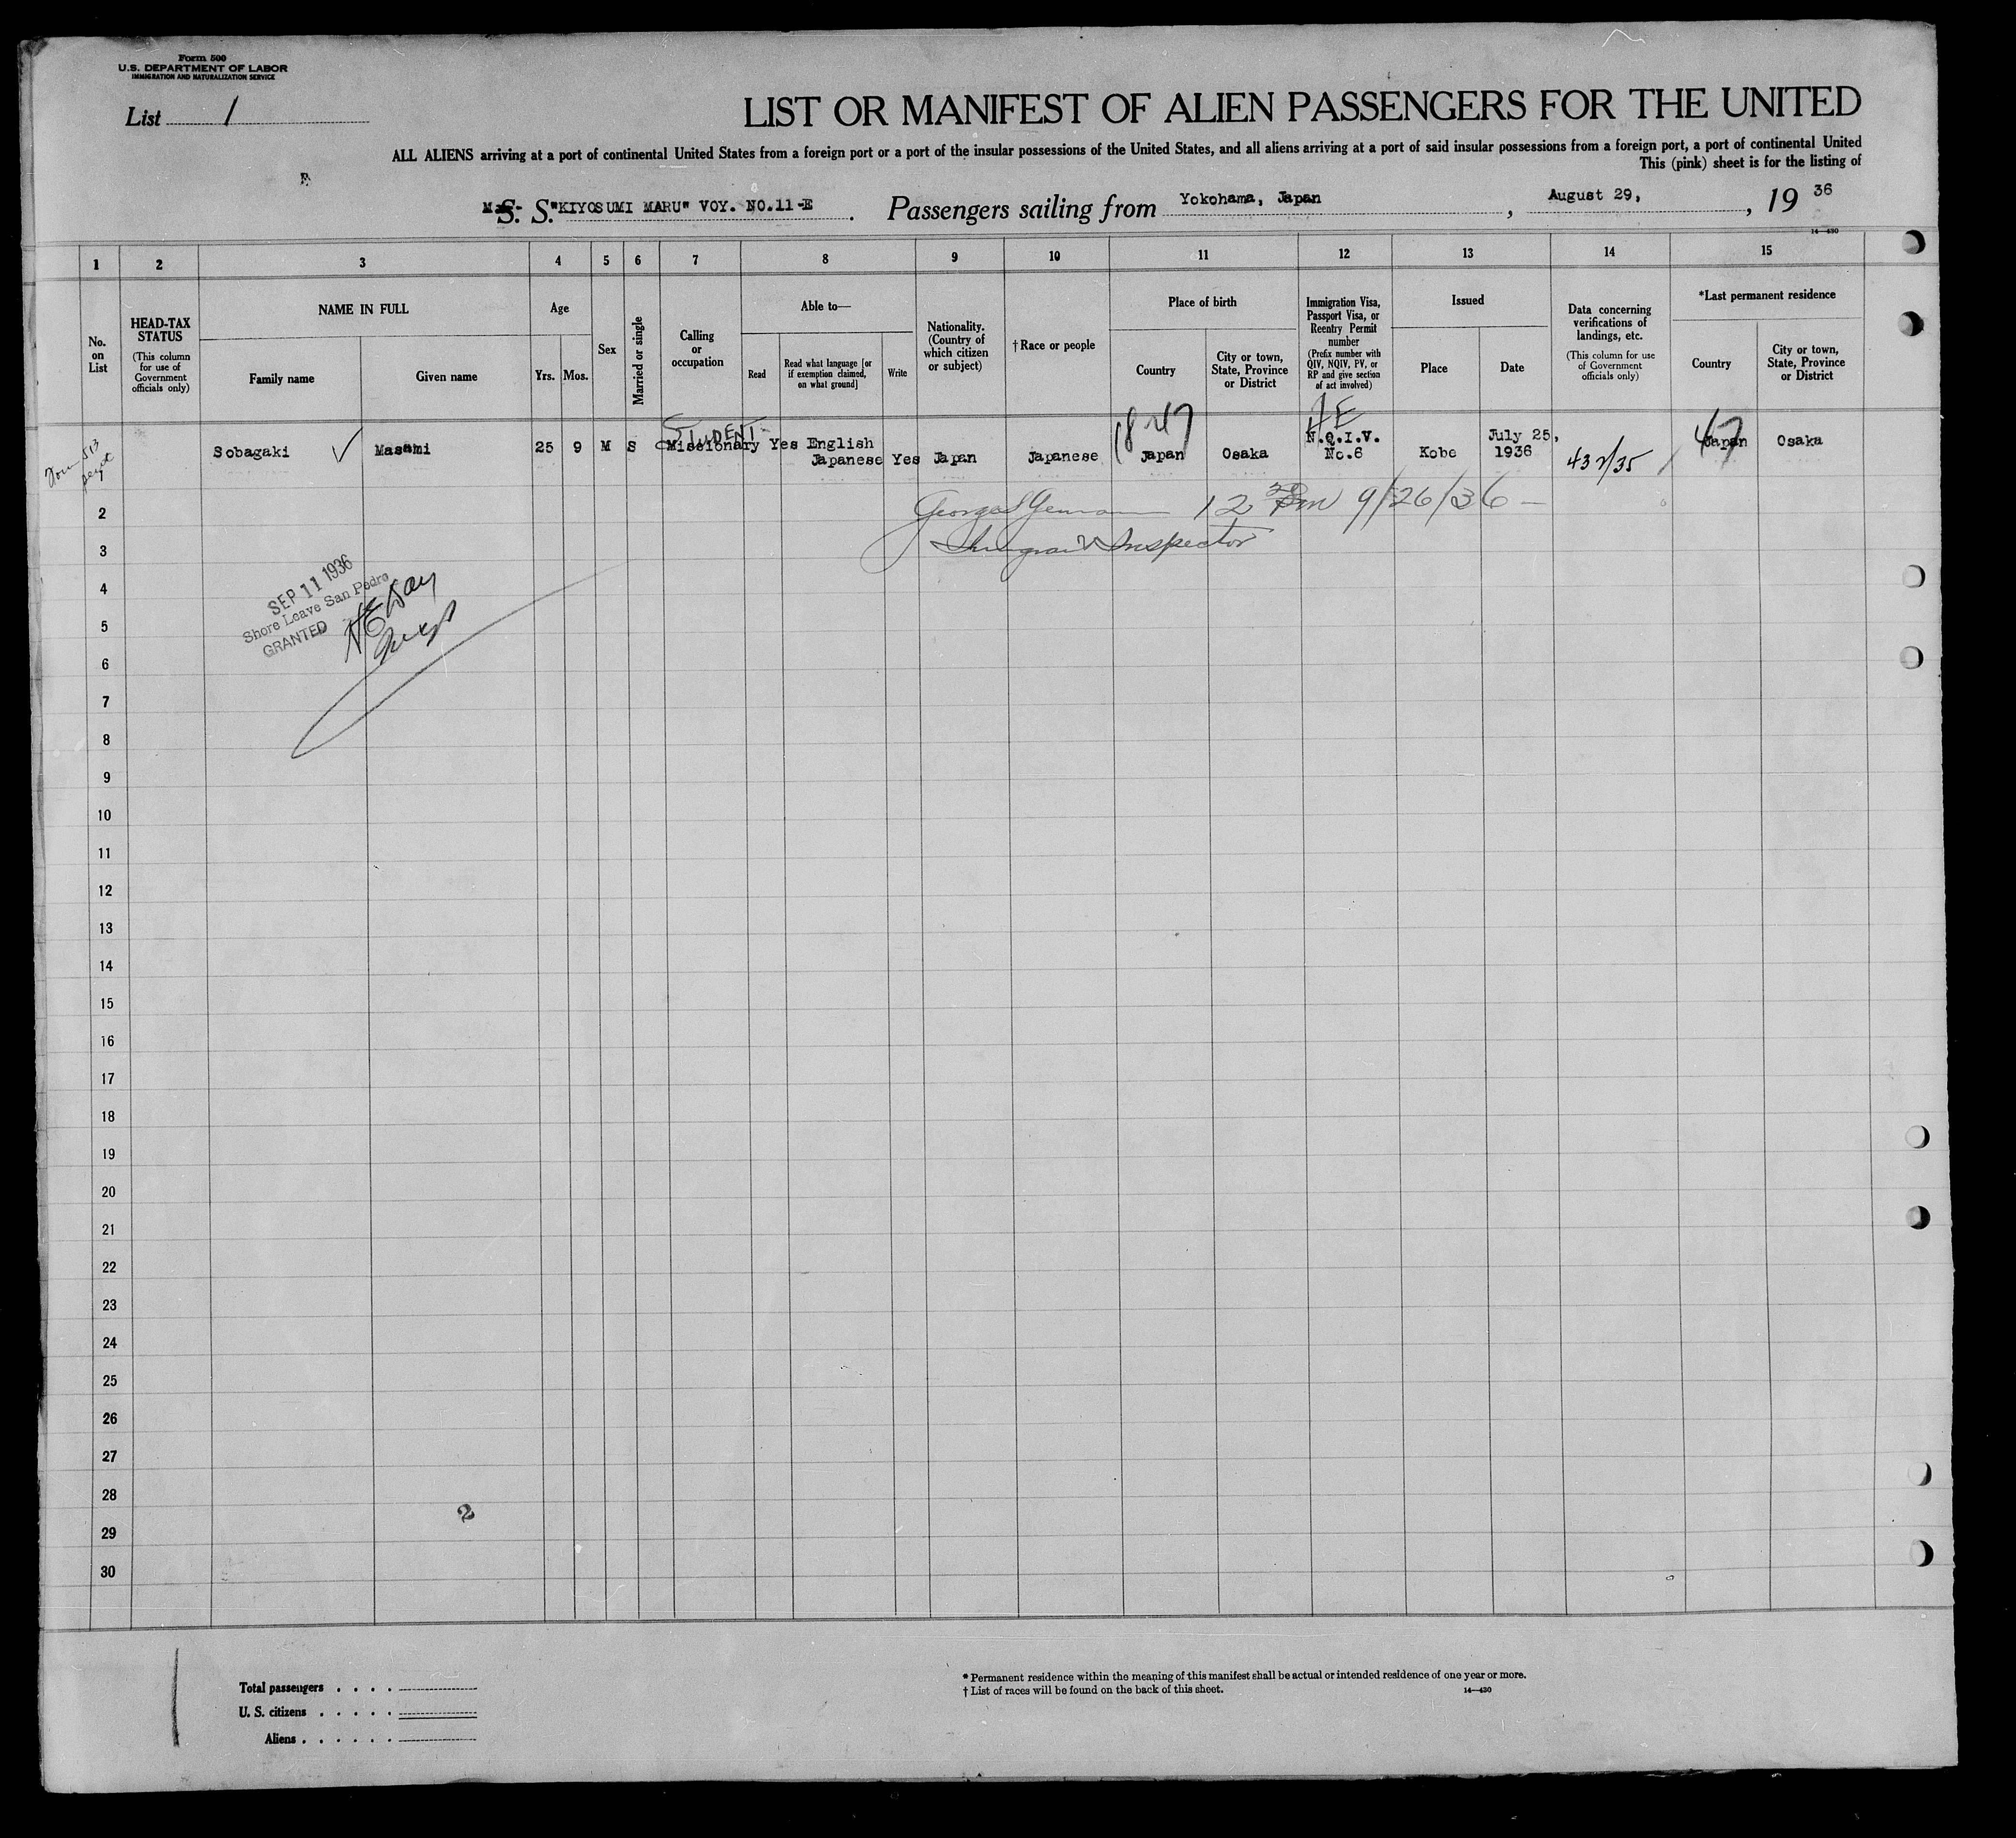 Form 500
U.S. DEPARTMENT OF LABOR
IMMIGRATION AND NATURALIZATION SERVICE
List 1
LIST OR MANIFEST OF ALIEN PASSENGERS FOR THE UNITED
ALL ALIENS arriving at a port of continental United States from a foreign port or a port of the insular possessions of the United States, and all aliens arriving at a port of said insular possessions from a foreign port, a port of continental United
This (pink) sheet is for the listing of
S. S. "KIYOSUMI MARU" VOY. NO.11-E. Passengers sailing from Yokohama, Japan, August 29, , 19 36
14—430
1 2 3 4 5 6 7 8 9 10 11 12 13 14 15
No. on List
HEAD-TAX STATUS
(This column for use of Government officials only)
NAME IN FULL
Family name
Given name
Age
Yrs. Mos.
Sex
Married or single
Calling or occupation
Able to—
Read
Read what language [or if exemption claimed, on what ground]
Write
Nationality. (Country of which citizen or subject)
†Race or people
Place of birth
Country
City or town, State, Province or District
Immigration Visa, Passport Visa, or Reentry Permit number
(Prefix number with QIV, NQIV, PV, or RP and give section of act involved)
Issued
Place
Date
Data concerning verifications of landings, etc.
(This column for use of Government officials only)
*Last permanent residence
Country
City or town, State, Province or District
STUDENT
Sobagaki ✓ Masami 25 9 M S Missionary Yes English Japanese Yes Japan Japanese Japan Osaka N.Q.I.V. No.6 Kobe July 25, 1936 Japan Osaka
47
4E
2
9/26/36
3
Inspector
4
SEP 11 1936
Shore Leave San Pedro
GRANTED
5
6
7
8
9
10
11
12
13
14
15
16
17
18
19
20
21
22
23
24
25
26
27
28
2
29
30
Total passengers . . . .
U. S. citizens . . . . .
Aliens . . . . . .
* Permanent residence within the meaning of this manifest shall be actual or intended residence of one year or more.
† List of races will be found on the back of this sheet.
14—430